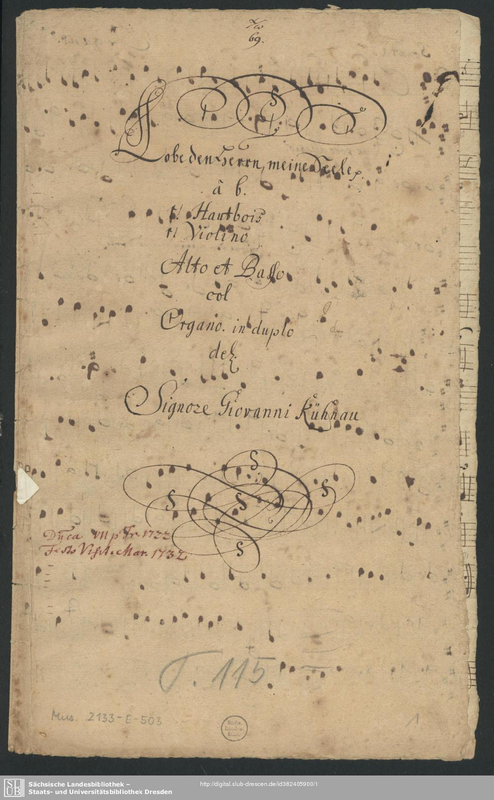 No
69.
Lobe den Herrn, meine Seele,
â 6.
1 Hautbois
1 Violino
Alto et Basso
col
Organo. in duplo
del
Signore Giovanni Kühnau
1722
Fest. Visit. Mar. 1732
T. 115
Mus. 2133-E-503
1
Sächsische Landesbibliothek –
Staats- und Universitätsbibliothek Dresden
http://digital.slub-dresden.de/id382495900/1